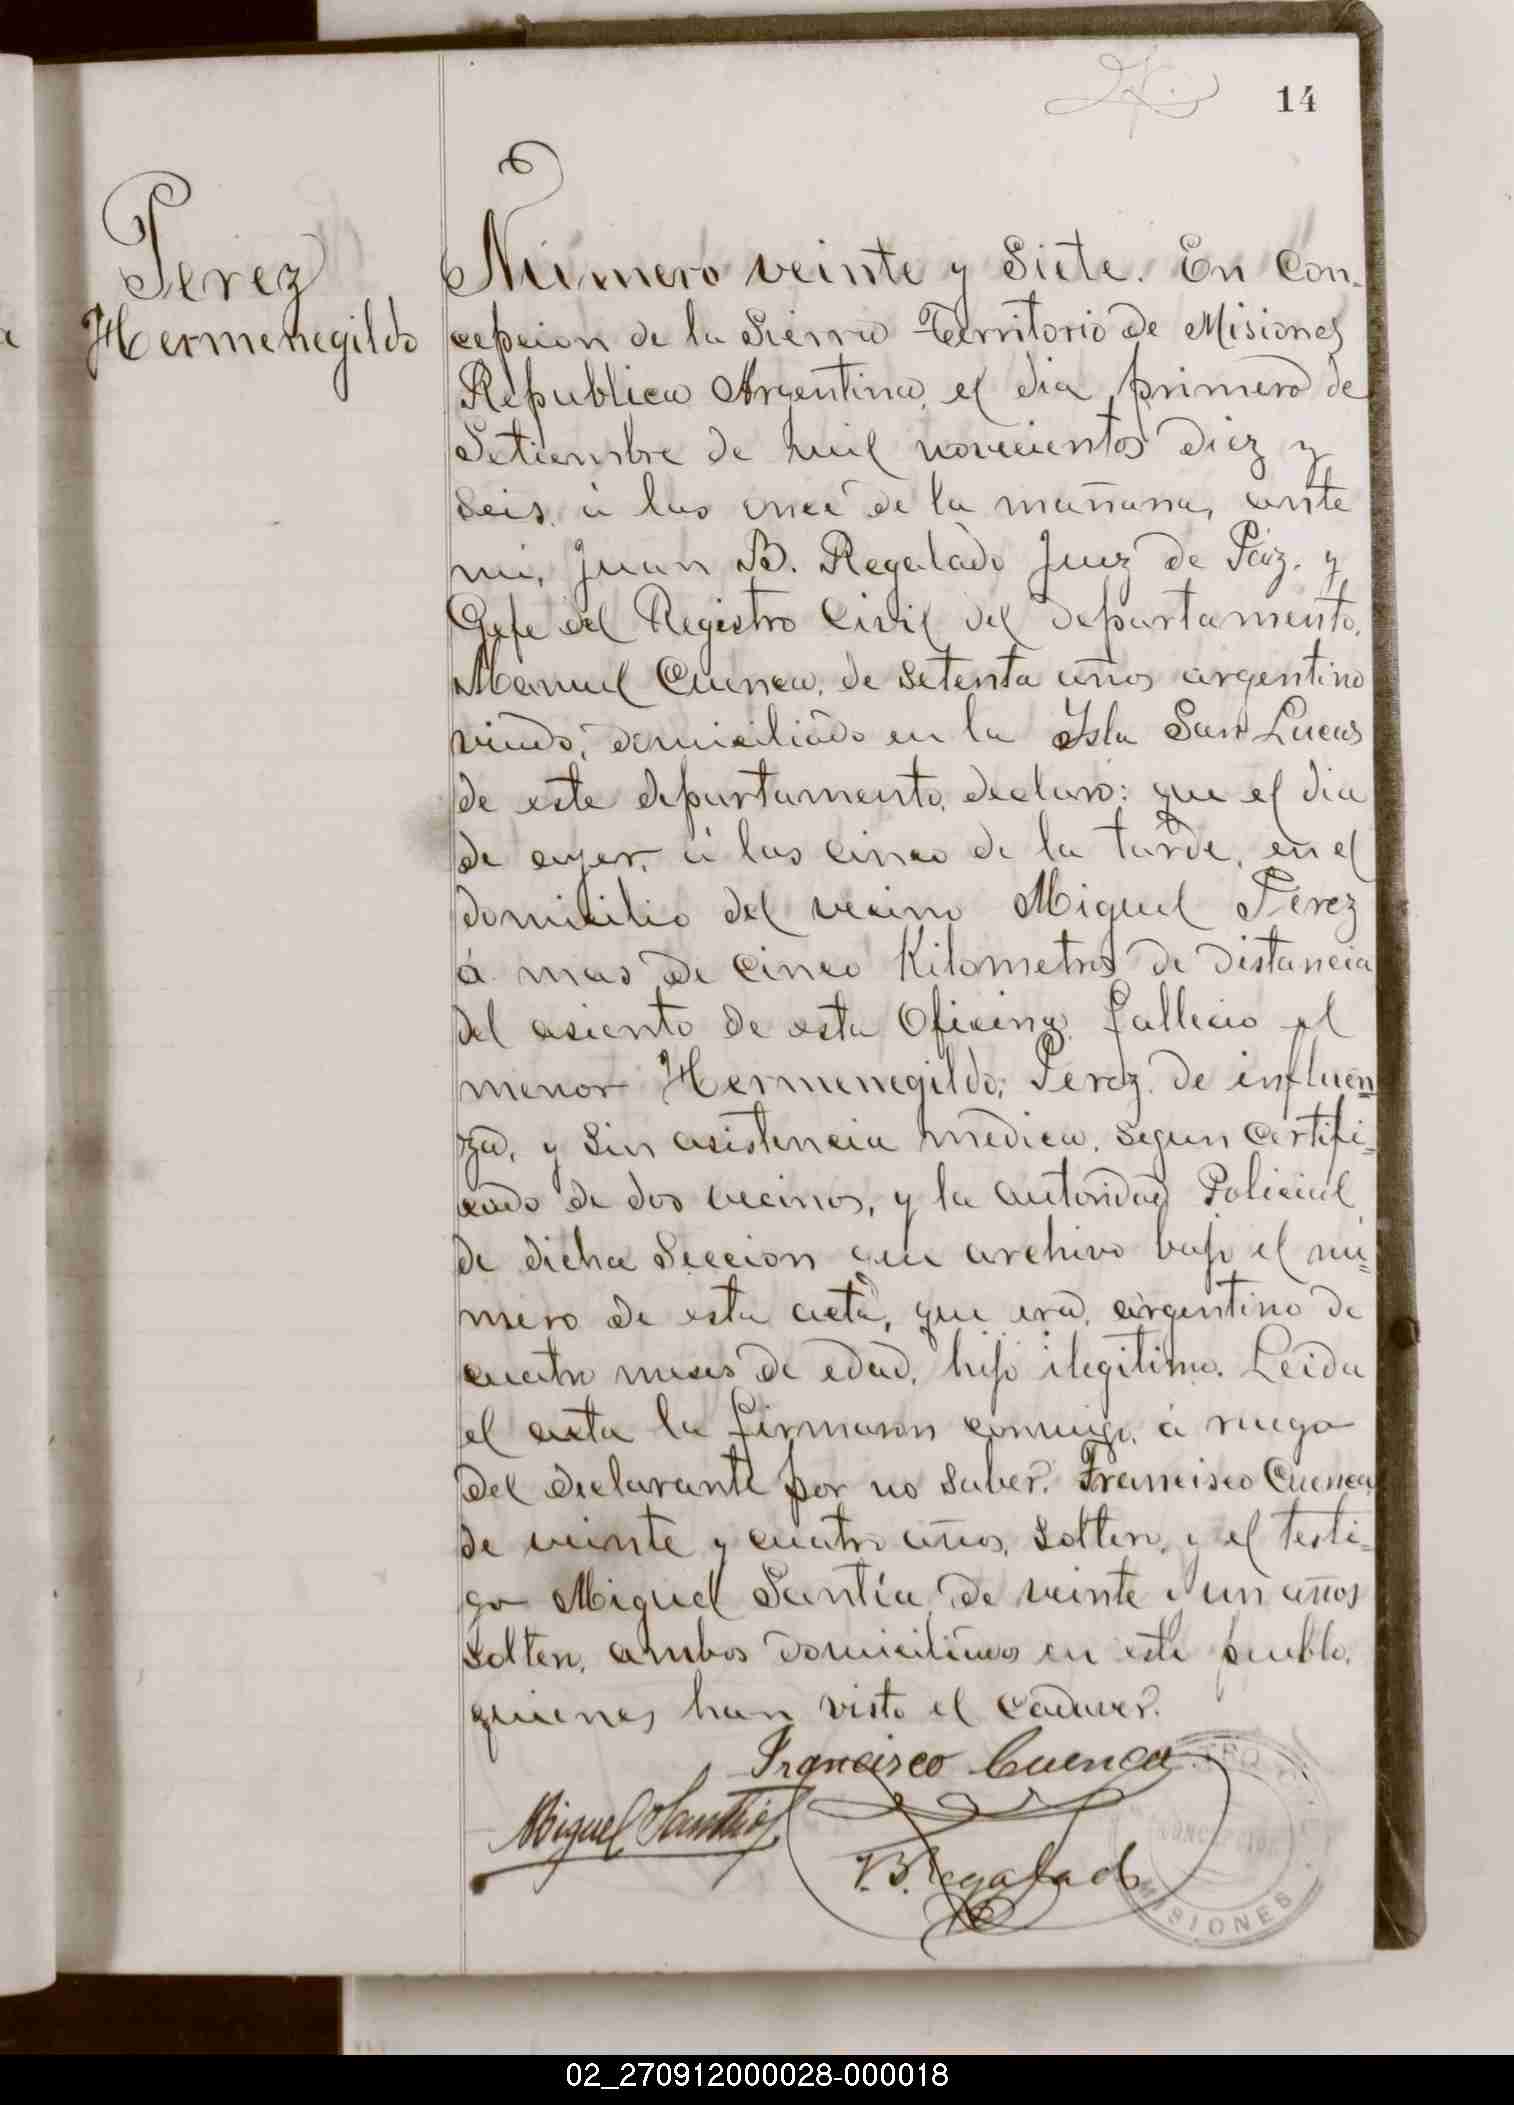 14
Perez
Hermenegildo
Número veinte y Siete. En Con-
cepcion de la Sierra Territorio de Misiones
Republica Argentina, el dia primero de
Setiembre de mil novecientos diez y
seis, á las once de la mañana, ante
mi, Juan B. Regalado Juez de Paz. y
Gefe del Registro Civil del departamento,
Manuel Cuenca, de setenta años argentino
viudo, domiciliado en la Isla San Lucas
de este departamento, declaro: que el dia
de ayer, á las cinco de la tarde, en el
domicilio del vecino Miguel Perez
á mas de cinco Kilometros de distancia
del asiento de esta Oficina, fallecio el
menor Hermenegildo, Perez, de influen=
za, y sin asistencia medica, segun certifi=
cado de dos vecinos, y la autoridad Policial
de dicha Seccion que archivo bajo el nu=
mero de esta acta, que era, argentino de
cuatro meses de edad, hijo ilegitimo. Leida
el acta la firmaron conmigo, á ruego
del declarante por no saber, Francisco Cuenca,
de veinte y cuatro años, soltero, y el testi=
go Miguel Santía, de veinte y un años
soltero, ambos domiciliados en este pueblo,
quienes han visto el cadaver.
Francisco Cuenca
Miguel Santía
J.B. Regalado
CONCEPCION
MISIONES
02_270912000028-000018